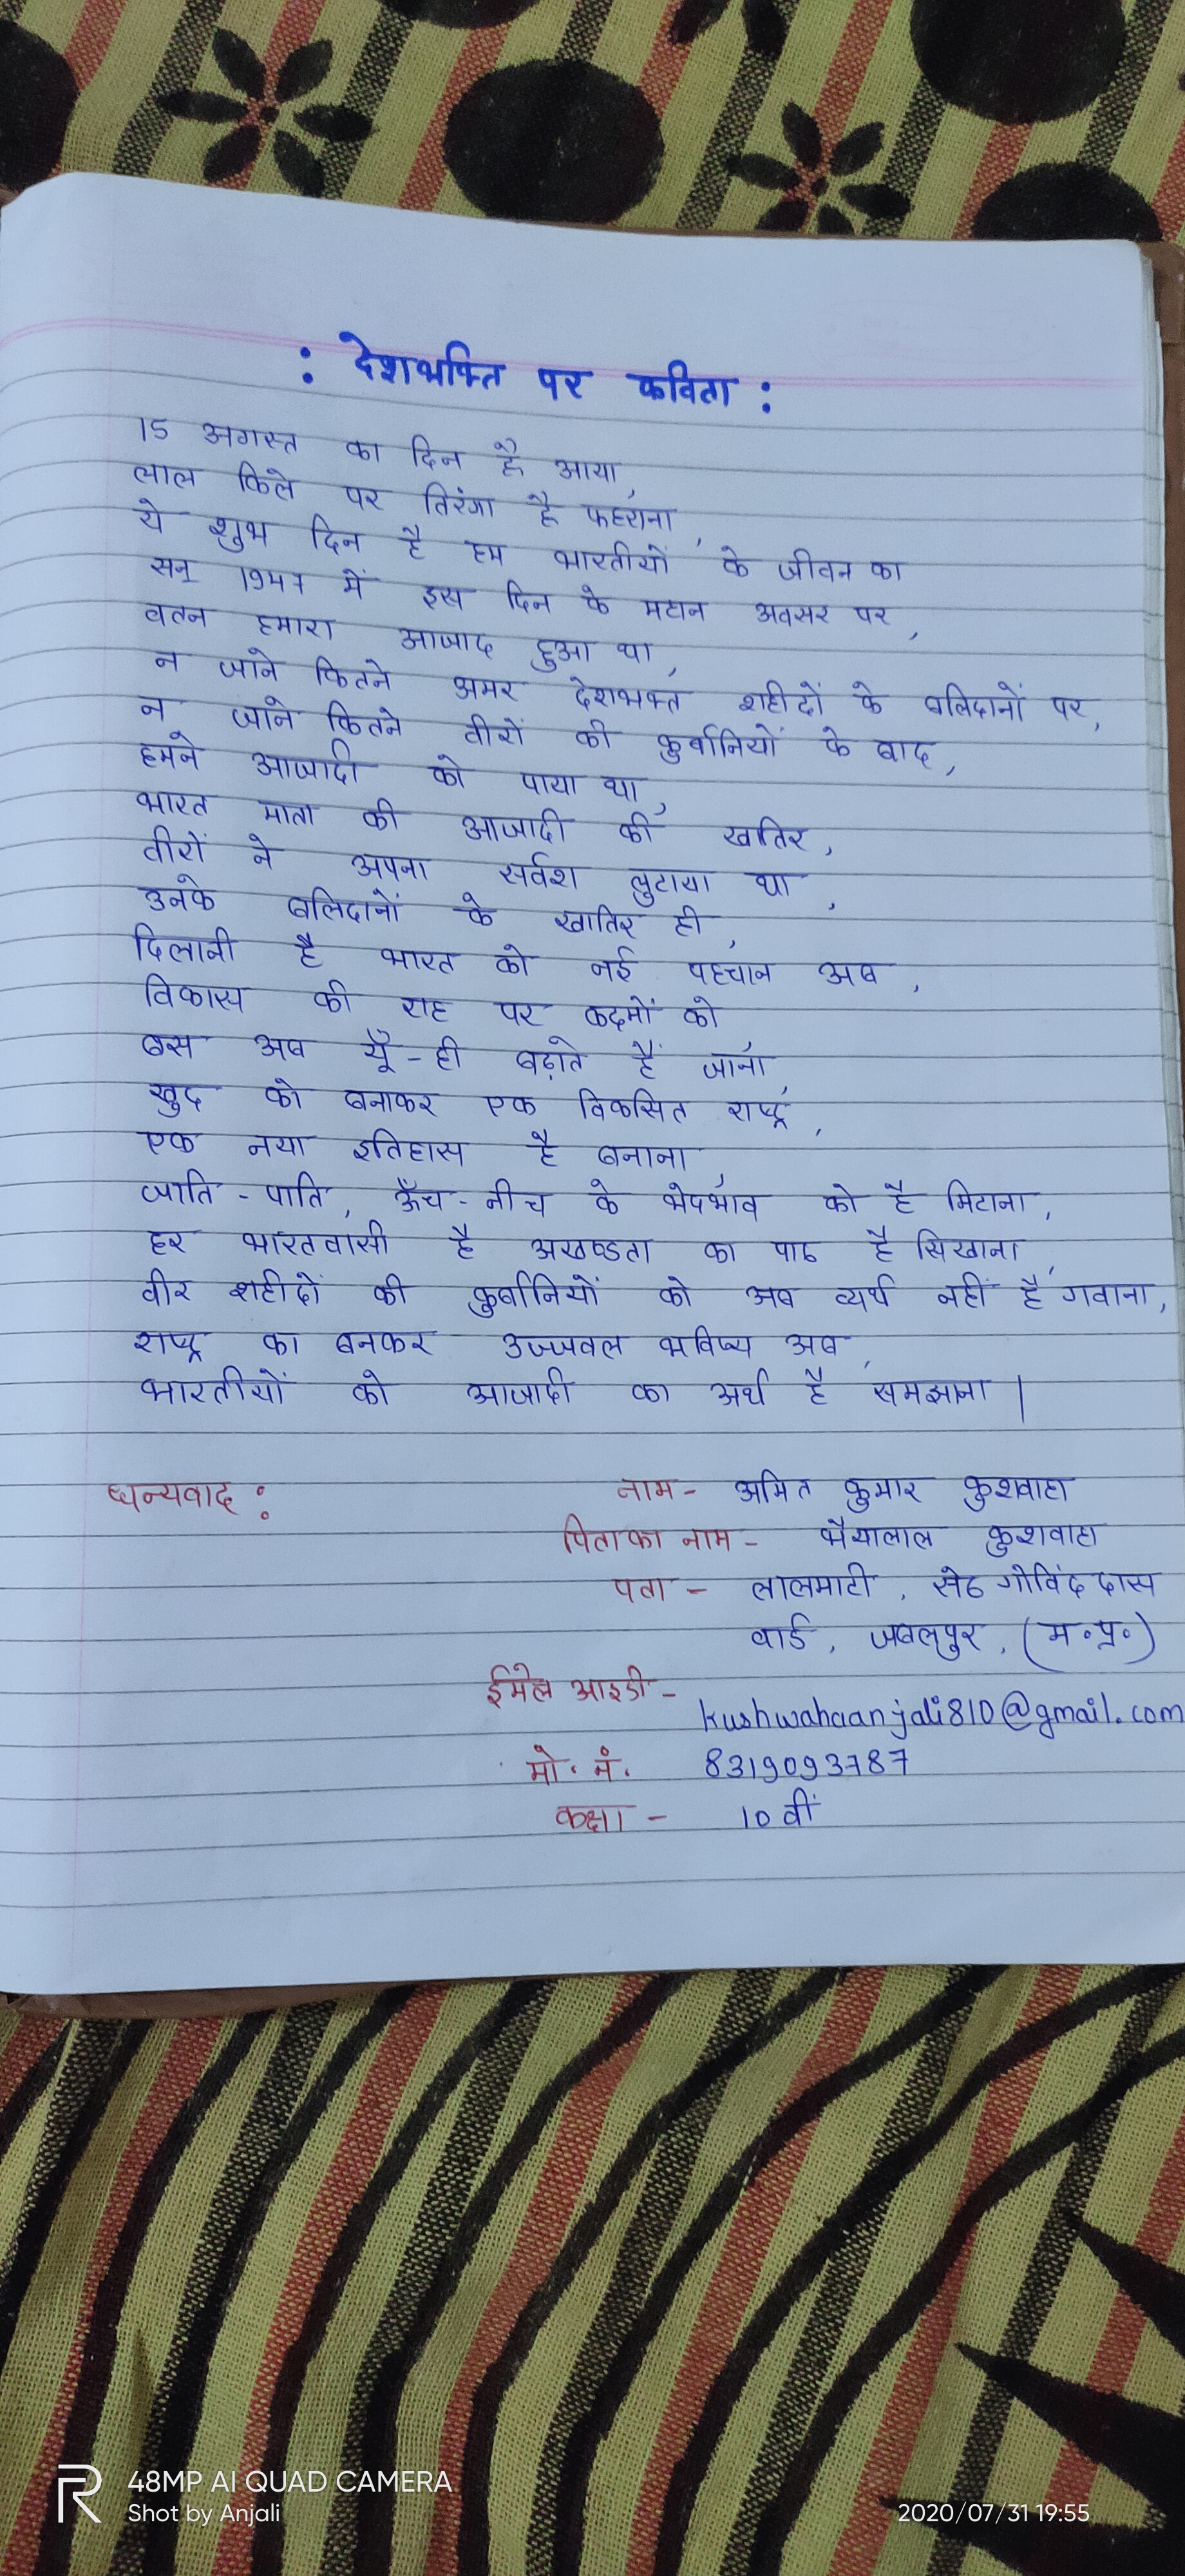 : देशभक्ति पर कविता :
15 अगस्त का दिन है आया,
लाल किले पर तिरंगा है फहराना,
ये शुभ दिन है हम भारतीयों के जीवन का
सन् 1947 में इस दिन के महान अवसर पर,
वतन हमारा आजाद हुआ था,
न जाने कितने अमर देशभक्त शहीदों के बलिदानों पर,
न जाने कितने वीरों की कुर्बानियों के बाद,
हमने आजादी को पाया था,
भारत माता की आजादी की खातिर,
वीरों ने अपना सर्वश लुटाया था,
उनके बलिदानों के खातिर ही,
दिलानी है भारत को नई पहचान अब,
विकास की राह पर कदमों को
बस अब यूँ-ही बढ़ाते हैं जाना,
खुद को बनाकर एक विकसित राष्ट्र,
एक नया इतिहास है बनाना,
जाति-पाति, ऊँच-नीच के भेदभाव को है मिटाना,
हर भारतवासी है अखण्डता का पाठ है सिखाना,
वीर शहीदों की कुर्बानियों को अब व्यर्थ नहीं है गवाना,
राष्ट्र का बनकर उज्जवल भविष्य अब,
भारतीयों को आजादी का अर्थ है समझाना |
धन्यवाद :
नाम- अमित कुमार कुशवाहा
पिता का नाम - भैयालाल कुशवाहा
पता - लालमाटी, सेठ गोविंद दास
वार्ड, जबलपुर, (म.प्र.)
ईमेल आइडी-
kushwahaanjali810@gmail.com
मो. नं. 8319093787
कक्षा - 10 वीं
48MP AI QUAD CAMERA
Shot by Anjali
2020/07/31 19:55